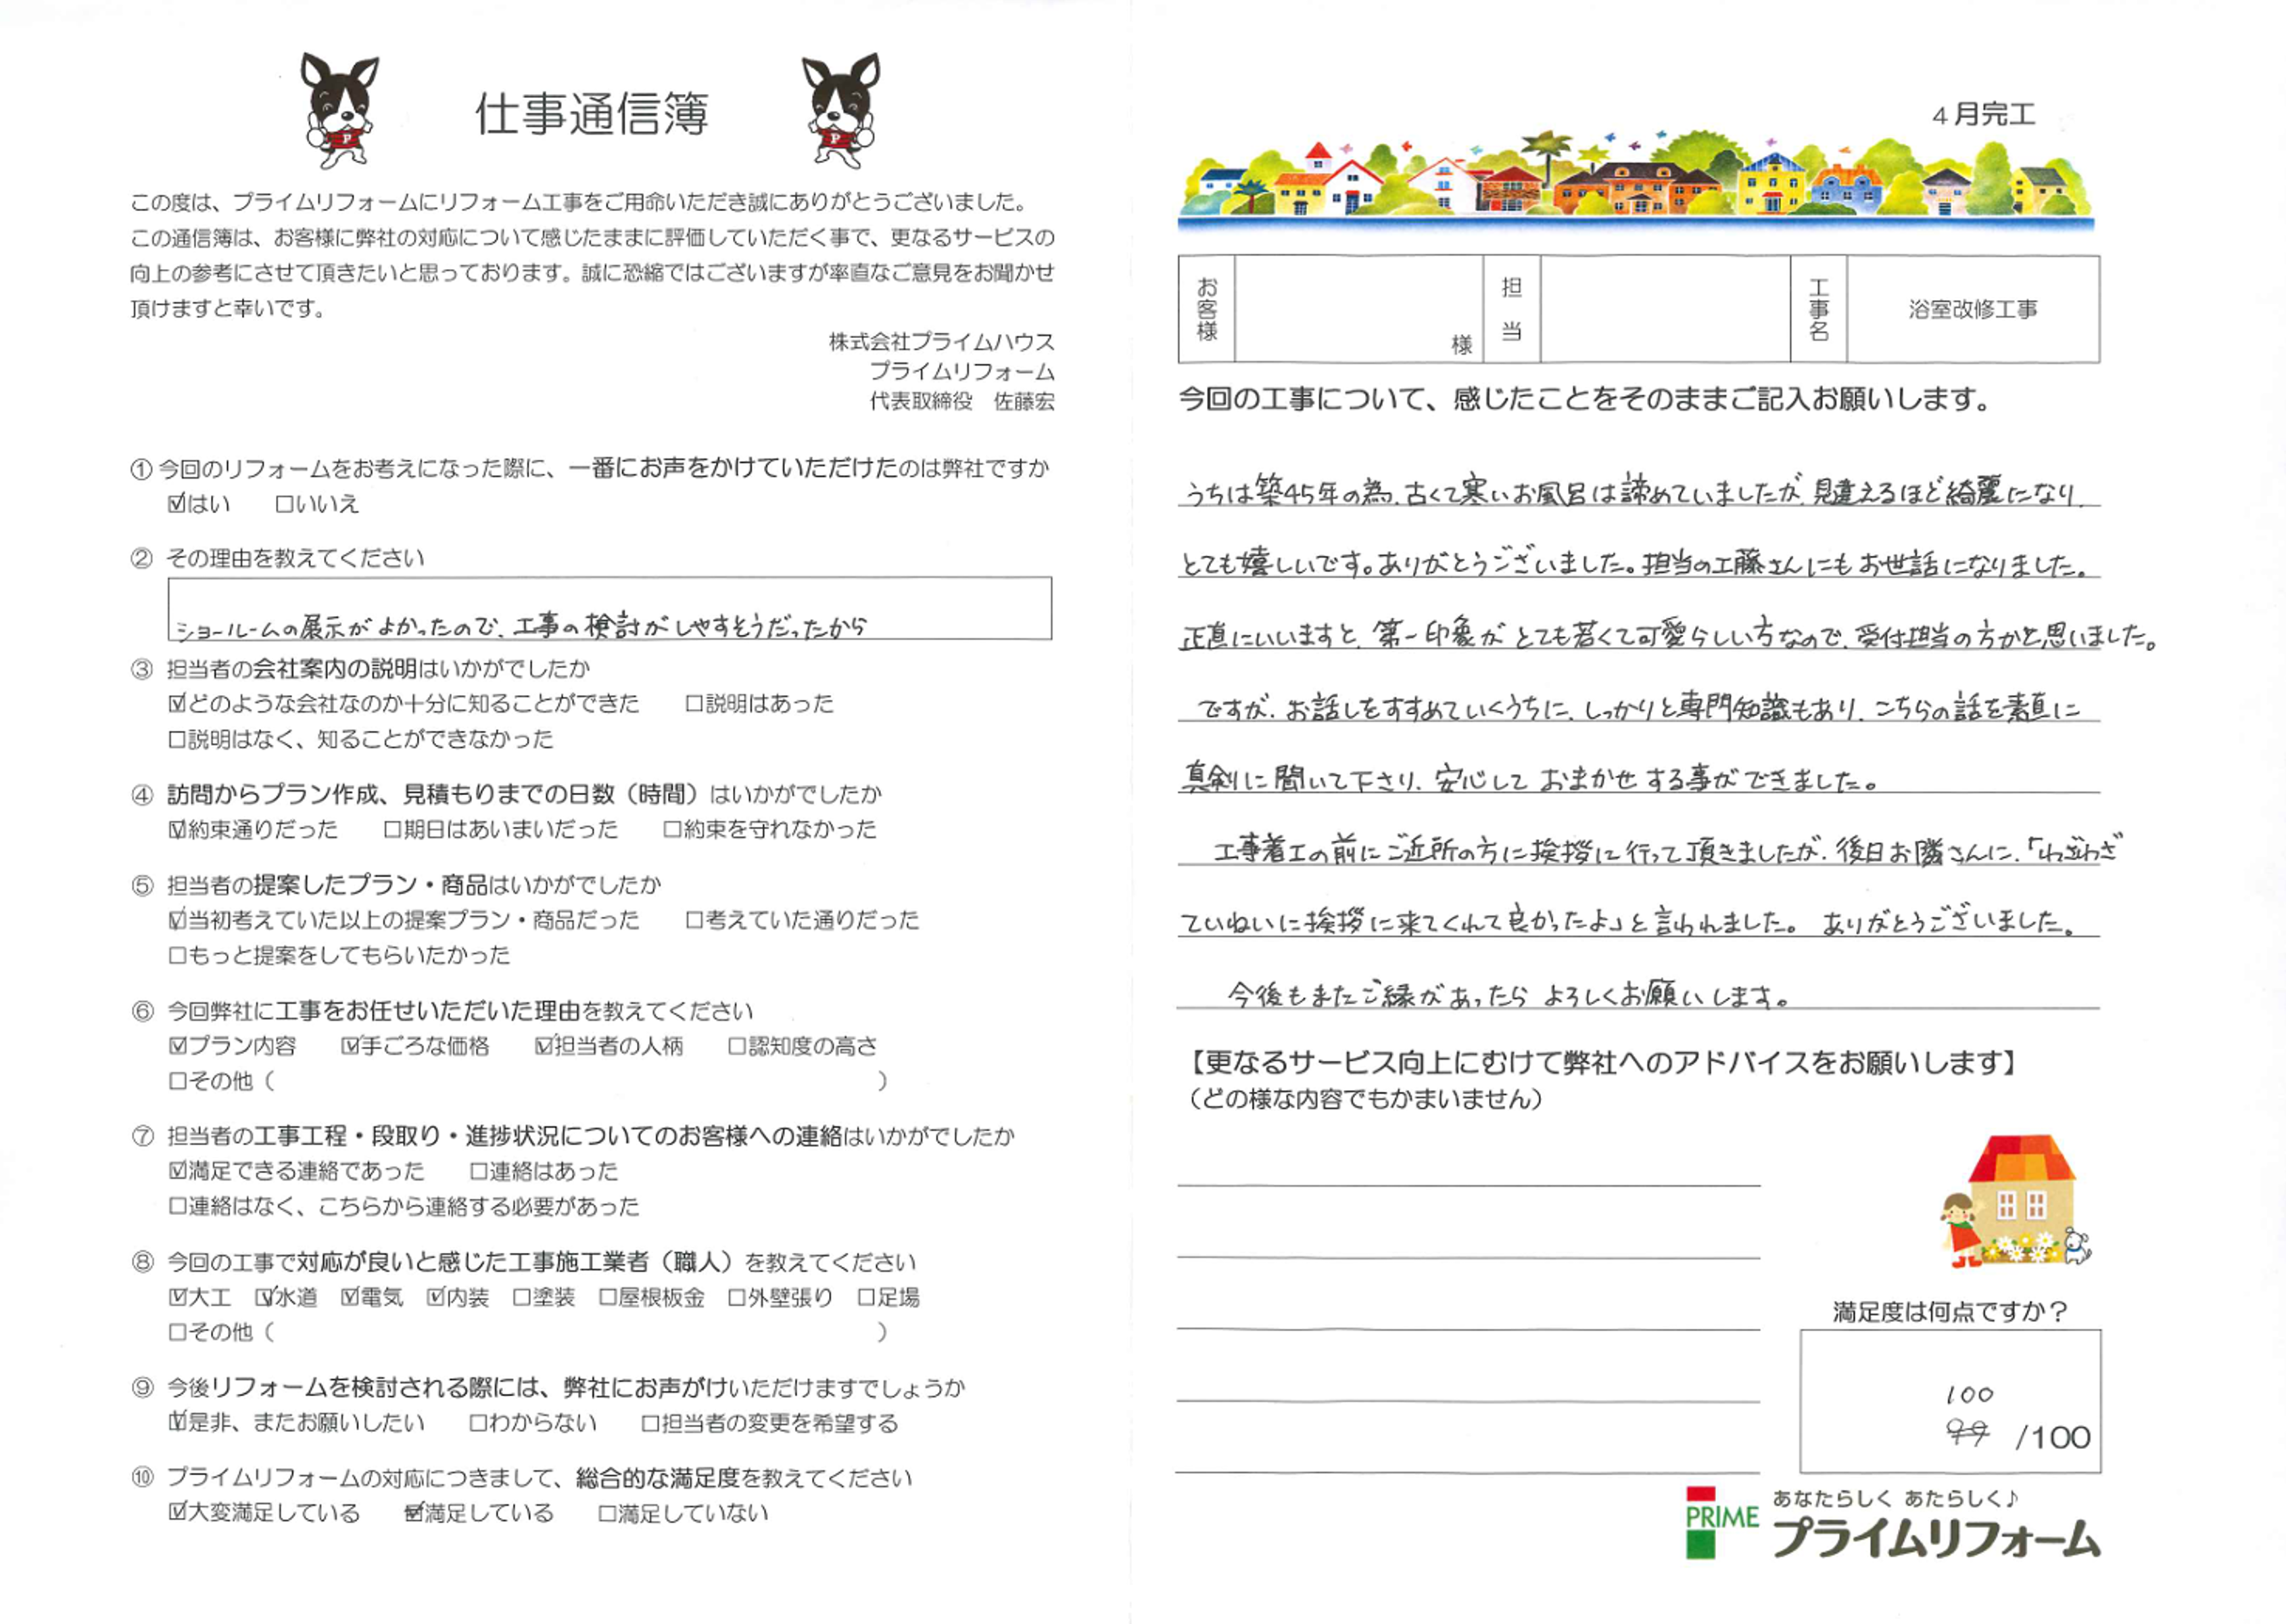 仕事通信簿
この度は、プライムリフォームにリフォーム工事をご用命いただき誠にありがとうございました。
この通信簿は、お客様に弊社の対応について感じたままに評価していただく事で、更なるサービスの
向上の参考にさせて頂きたいと思っております。誠に恐縮ではございますが率直なご意見をお聞かせ
頂けますと幸いです。
株式会社プライムハウス
プライムリフォーム
代表取締役 佐藤宏
① 今回のリフォームをお考えになった際に、一番にお声をかけていただけたのは弊社ですか
☑はい □いいえ
② その理由を教えてください
ショールームの展示がよかったので、工事の検討がしやすそうだったから
③ 担当者の会社案内の説明はいかがでしたか
☑どのような会社なのか十分に知ることができた □説明はあった
□説明はなく、知ることができなかった
④ 訪問からプラン作成、見積もりまでの日数（時間）はいかがでしたか
☑約束通りだった □期日はあいまいだった □約束を守れなかった
⑤ 担当者の提案したプラン・商品はいかがでしたか
☑当初考えていた以上の提案プラン・商品だった □考えていた通りだった
□もっと提案をしてもらいたかった
⑥ 今回弊社に工事をお任せいただいた理由を教えてください
☑プラン内容 ☑手ごろな価格 ☑担当者の人柄 □認知度の高さ
□その他（ ）
⑦ 担当者の工事工程・段取り・進捗状況についてのお客様への連絡はいかがでしたか
☑満足できる連絡であった □連絡はあった
□連絡はなく、こちらから連絡する必要があった
⑧ 今回の工事で対応が良いと感じた工事施工業者（職人）を教えてください
☑大工 ☑水道 ☑電気 ☑内装 □塗装 □屋根板金 □外壁張り □足場
□その他（ ）
⑨ 今後リフォームを検討される際には、弊社にお声がけいただけますでしょうか
☑是非、またお願いしたい □わからない □担当者の変更を希望する
⑩ プライムリフォームの対応につきまして、総合的な満足度を教えてください
☑大変満足している ☑満足している □満足していない
4月完工
お客様 様 担当 工事名 浴室改修工事
今回の工事について、感じたことをそのままご記入お願いします。
うちは築45年の為、古くて寒いお風呂は諦めていましたが、見違えるほど綺麗になり、
とても嬉しいです。ありがとうございました。担当の工藤さんにもお世話になりました。
正直にいいますと、第一印象がとても若くて可愛らしい方なので、受付担当の方かと思いました。
ですが、お話しをすすめていくうちに、しっかりと専門知識もあり、こちらの話を素直に
真剣に聞いて下さり、安心しておまかせする事ができました。
工事着工の前にご近所の方に挨拶に行って頂きましたが、後日お隣さんに、「わざわざ
ていねいに挨拶に来てくれて良かったよ」と言われました。 ありがとうございました。
今後もまたご縁があったら よろしくお願いします。
【更なるサービス向上にむけて弊社へのアドバイスをお願いします】
（どの様な内容でもかまいません）
満足度は何点ですか？
100
99 /100
PRIME
あなたらしく あたらしく♪
プライムリフォーム